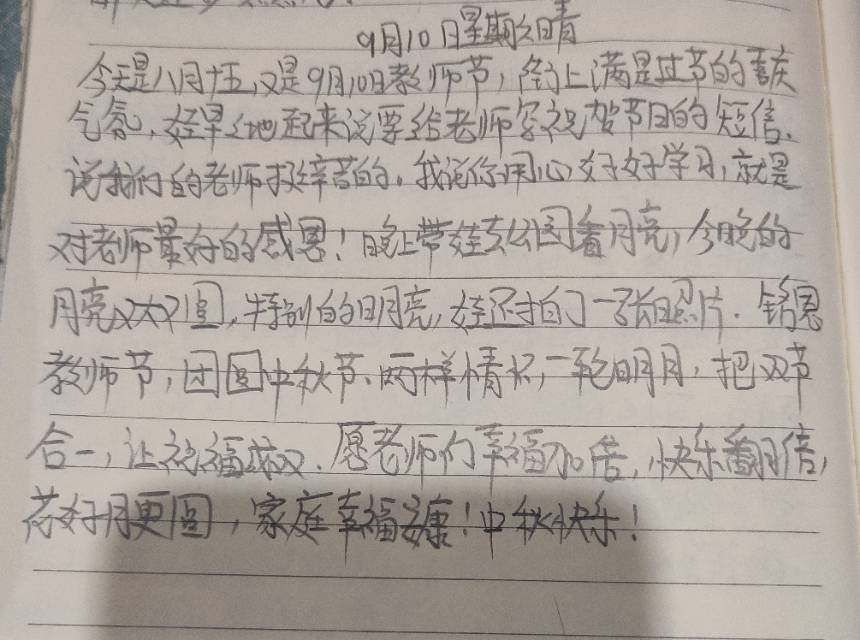 9月10日星期六晴
今天是八月十五,又是9月10日教师节,街上满是过节的喜庆
气氛,娃早早地起来说要给老师写祝贺节日的短信、
说我们的老师挺辛苦的,我说你用心好好学习,就是
对老师最好的感恩!晚上带娃去公园看月亮,今晚的
月亮又大又圆,特别的明亮,娃还拍了一张照片.铭恩
教师节,团圆中秋节、两样情怀,一轮明月,把双节
合一,让祝福成双.愿老师们幸福加倍,快乐翻倍,
花好月更圆,家庭幸福安康!中秋快乐!